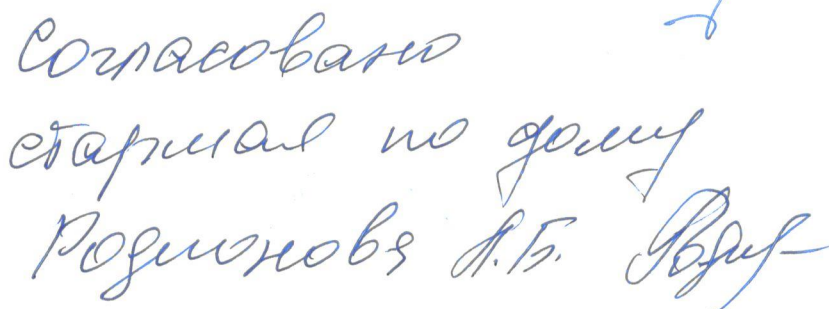 Согласовано
старшая по дому
Родионова А.Б.